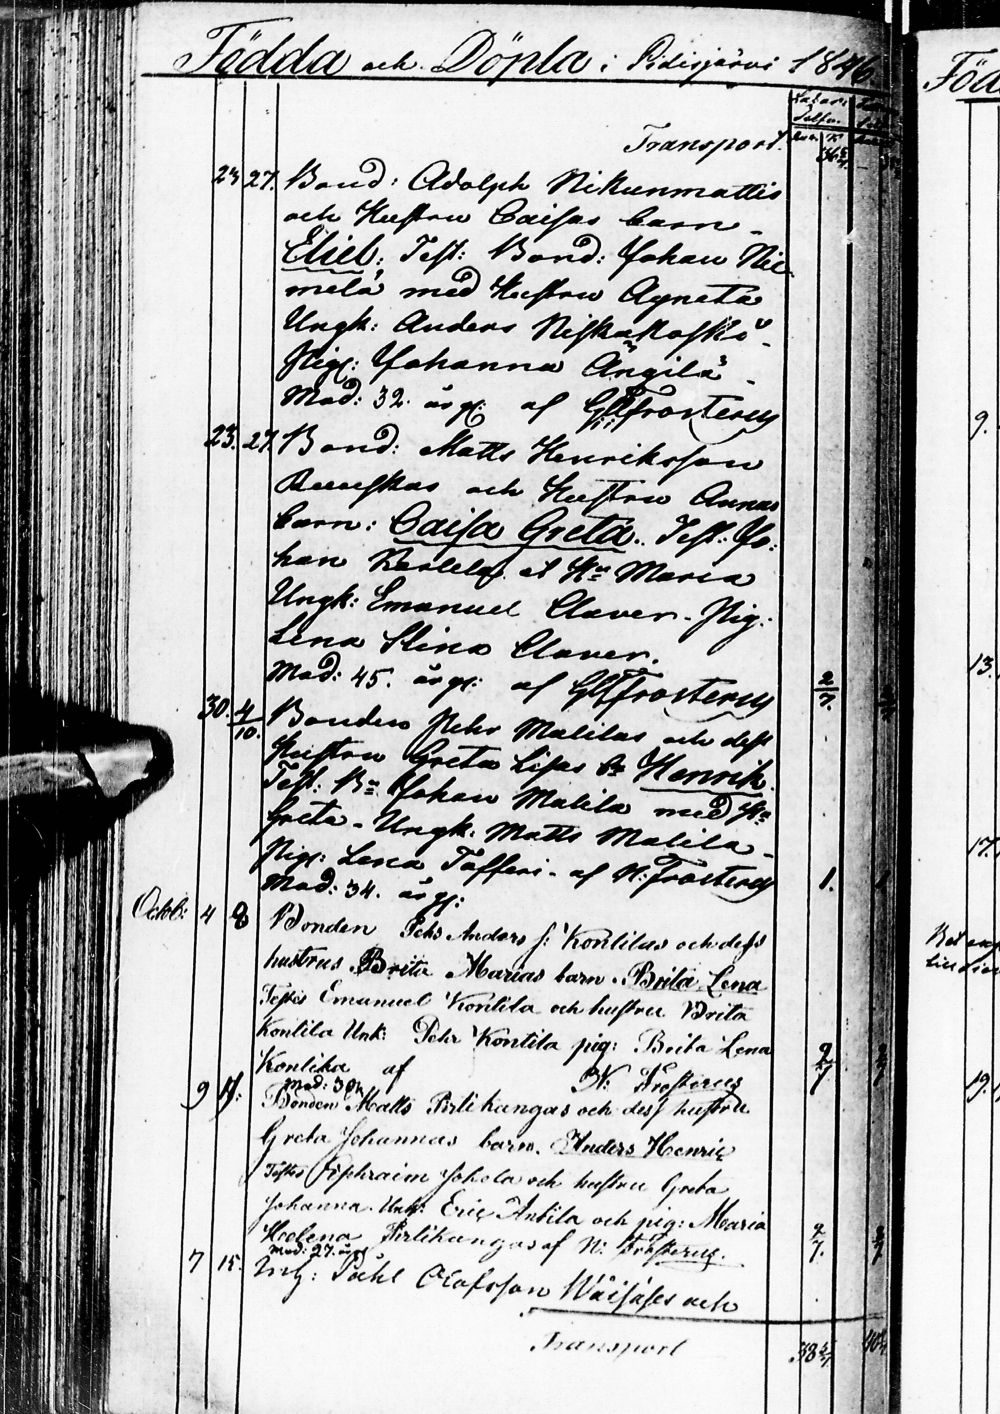 Födda och Döpta i Pidisjärvi 1846
Transport.
23 27. Bond: Adolph Nikunmattis
och Hustru Caisas barn
Eliel; Test: Bond: Johan Nie-
melä med Hustru Agneta
Ungk: Anders Niskakoski
Pig: Johanna Ängilä
Mod: 32. års g: af GHFrosterus
23. 27. Bond: Matts Henriksson
och Hustru Annas
barn: Caisa Greta. Test: Jo:
han et Hu Maria
Ungk: Emanuel Claver. Pig:
Lena Stina Claver.
Mod: 45. års g: af GHFrosterus 2/7.
30. 4/10. Bonden Pehr Malilas och dess
Hustru Greta Lisas bn Henrik.
Test: Bn Johan Malila med Hu
Greta. Ungk: Matts Malila
Pig: Lena Tofferi. af N: Frosterus 1.
Mod: 34. års g:
Octob: 4 8 Bonden Pehr Anders s: Kontilas och dess
hustrus Brita Marias barn. Brita Lena
Testes Emanuel Kontila och hustru Brita
Kontila Unk: Pehr Kontila pig: Brita Lena
Kontila af N: Frosterus 2/7
mod: 30
9 11: Bonden Matts Pirlikangas och dess hustru
Greta Johannas barn. Anders Henric
Testes Ephraim Jokela och hustru Greta
Johanna. Unk: Eric Antila och pig: Maria
Helena Pirlikangas af N: Frosterus. 2/7.
mod: 27. års
7 15. Påhl Olofsson Wäisäses och
Transport 38 5/7
9.
13.
17.
19.